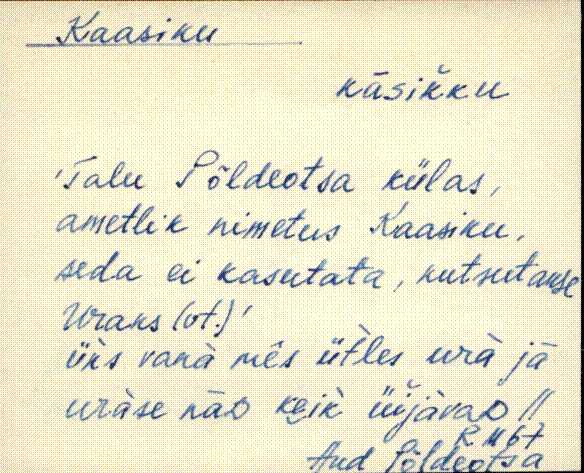 Kaasiku
kāsik̆ku
'Talu Põldeotsa külas,
ametlik nimetus Kaasiku,
seda ei kasutata, kutsutakse
Uraks (vt.)'
üks vanà mēs üt̀les urà jä
uràse näD kēik üijàvaD //
R M 67
Aud Põldeotsa